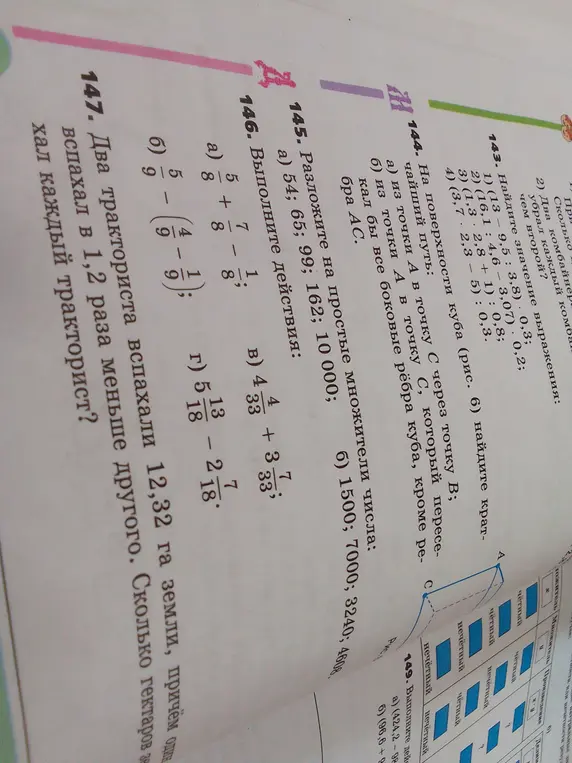 2) Два комбайнер
убрал каждый
чем второй?
143. Найдите значение выражения:
1) (13 − 9,5 : 3,8) · 0,3;
2) (16,1 : 4,6 − 3,07) · 0,2;
3) (1,3 · 2,8 + 1) : 0,8;
4) (3,7 · 2,3 − 5) : 0,3.
144. На поверхности куба (рис. 6) найдите крат-
чайший путь:
а) из точки A в точку C через точку B;
б) из точки A в точку C, который пересе-
кал бы все боковые рёбра куба, кроме ре-
бра AC.
145. Разложите на простые множители числа:
а) 54; 65; 99; 162; 10 000; б) 1500; 7000; 3240; 4608.
146. Выполните действия:
а) 5/8 + 7/8 − 1/8; в) 4 4/33 + 3 7/33;
б) 5/9 − (4/9 − 1/9); г) 5 13/18 − 2 7/18.
147. Два тракториста вспахали 12,32 га земли, причём один
вспахал в 1,2 раза меньше другого. Сколько гектаров
хал каждый тракторист?
A
C
чётный
чётный
нечётный
нечётный
чётный
нечётный
чётный
нечётный
149. Выполните
а) (424,2 − 98
б) (96,6 + 9